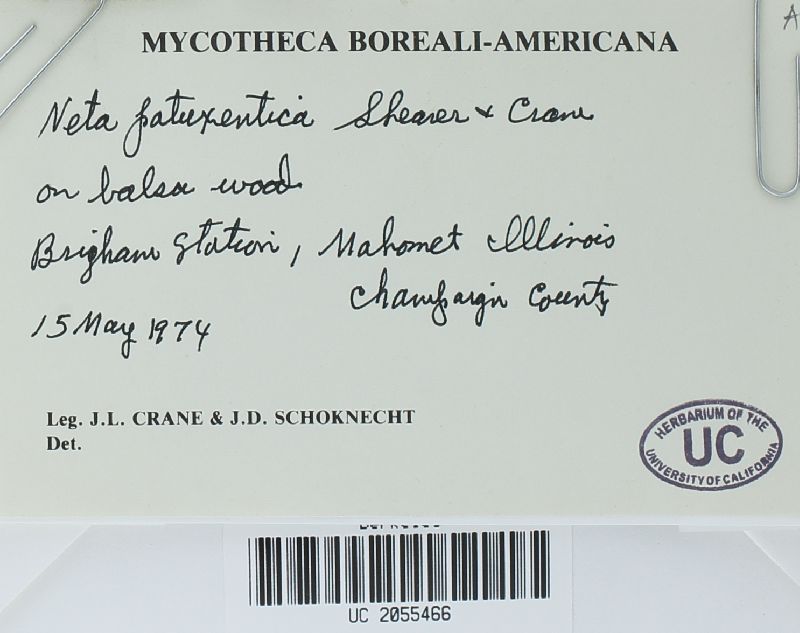 MYCOTHECA BOREALI-AMERICANA
Neta patuxentica Shearer & Crane
on balsa wood
Brigham Station, Mahomet Illinois
Champaign County
15 May 1974
Leg. J.L. CRANE & J.D. SCHOKNECHT
Det.
HERBARIUM OF THE
UC
UNIVERSITY OF CALIFORNIA
UC 2055466